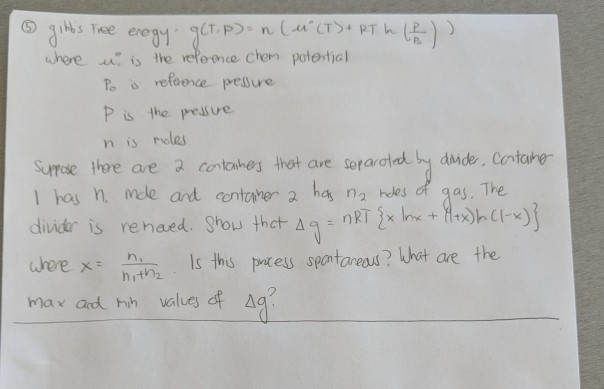 ⑤ gibb's Tree enegy. g(T,P) = n (μ°(T) + RT ln (P/P₀))
where μ° is the reference chem potential
P₀ is refaence pressure
P is the pressure
n is moles
Suppose there are 2 containers that are separated by divider. Container
1 has n, mole and container 2 has n₂ moles of gas. The
divider is removed. Show that Δg = nRT {x lnx + (1+x)ln(1-x)}
where x = n₁/n₁+n₂. Is this process spontaneous? What are the
max and min values of Δg?